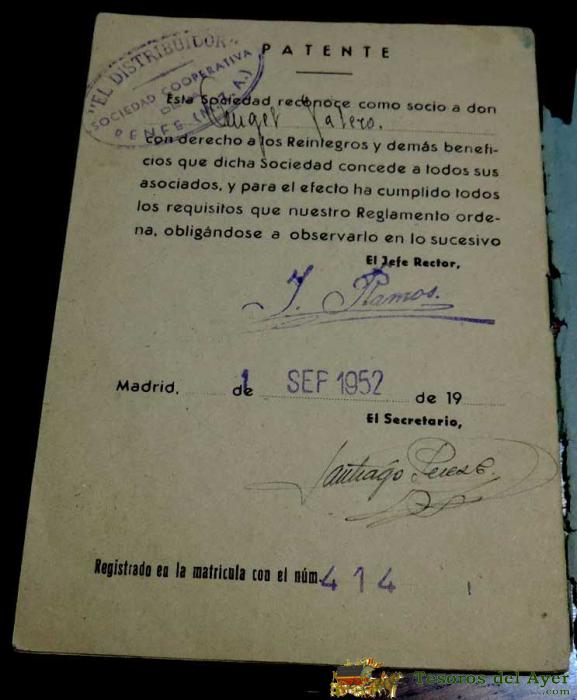 "EL DISTRIBUIDOR"
SOCIEDAD COOPERATIVA
DE LA
RENFE (M. Z. A.)
PATENTE
Esta Sociedad reconoce como socio a don
Angel Valero.
con derecho a los Reintegros y demás benefi-
cios que dicha Sociedad concede a todos sus
asociados, y para el efecto ha cumplido todos
los requisitos que nuestro Reglamento orde-
na, obligándose a observarlo en lo sucesivo
El Jefe Rector,
J. Ramos.
Madrid, 1 de SEP 1952 de 19
El Secretario,
Santiago Perez
Registrado en la matricula con el núm. 414
Tesoros del Ayer
.com